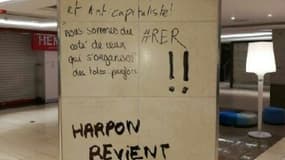 et Anti capitaliste!
nous sommes du
coté de ceux
qui s'organisent
des tolos parfois
#RER
!!
HARPON
REVIENT
HEM